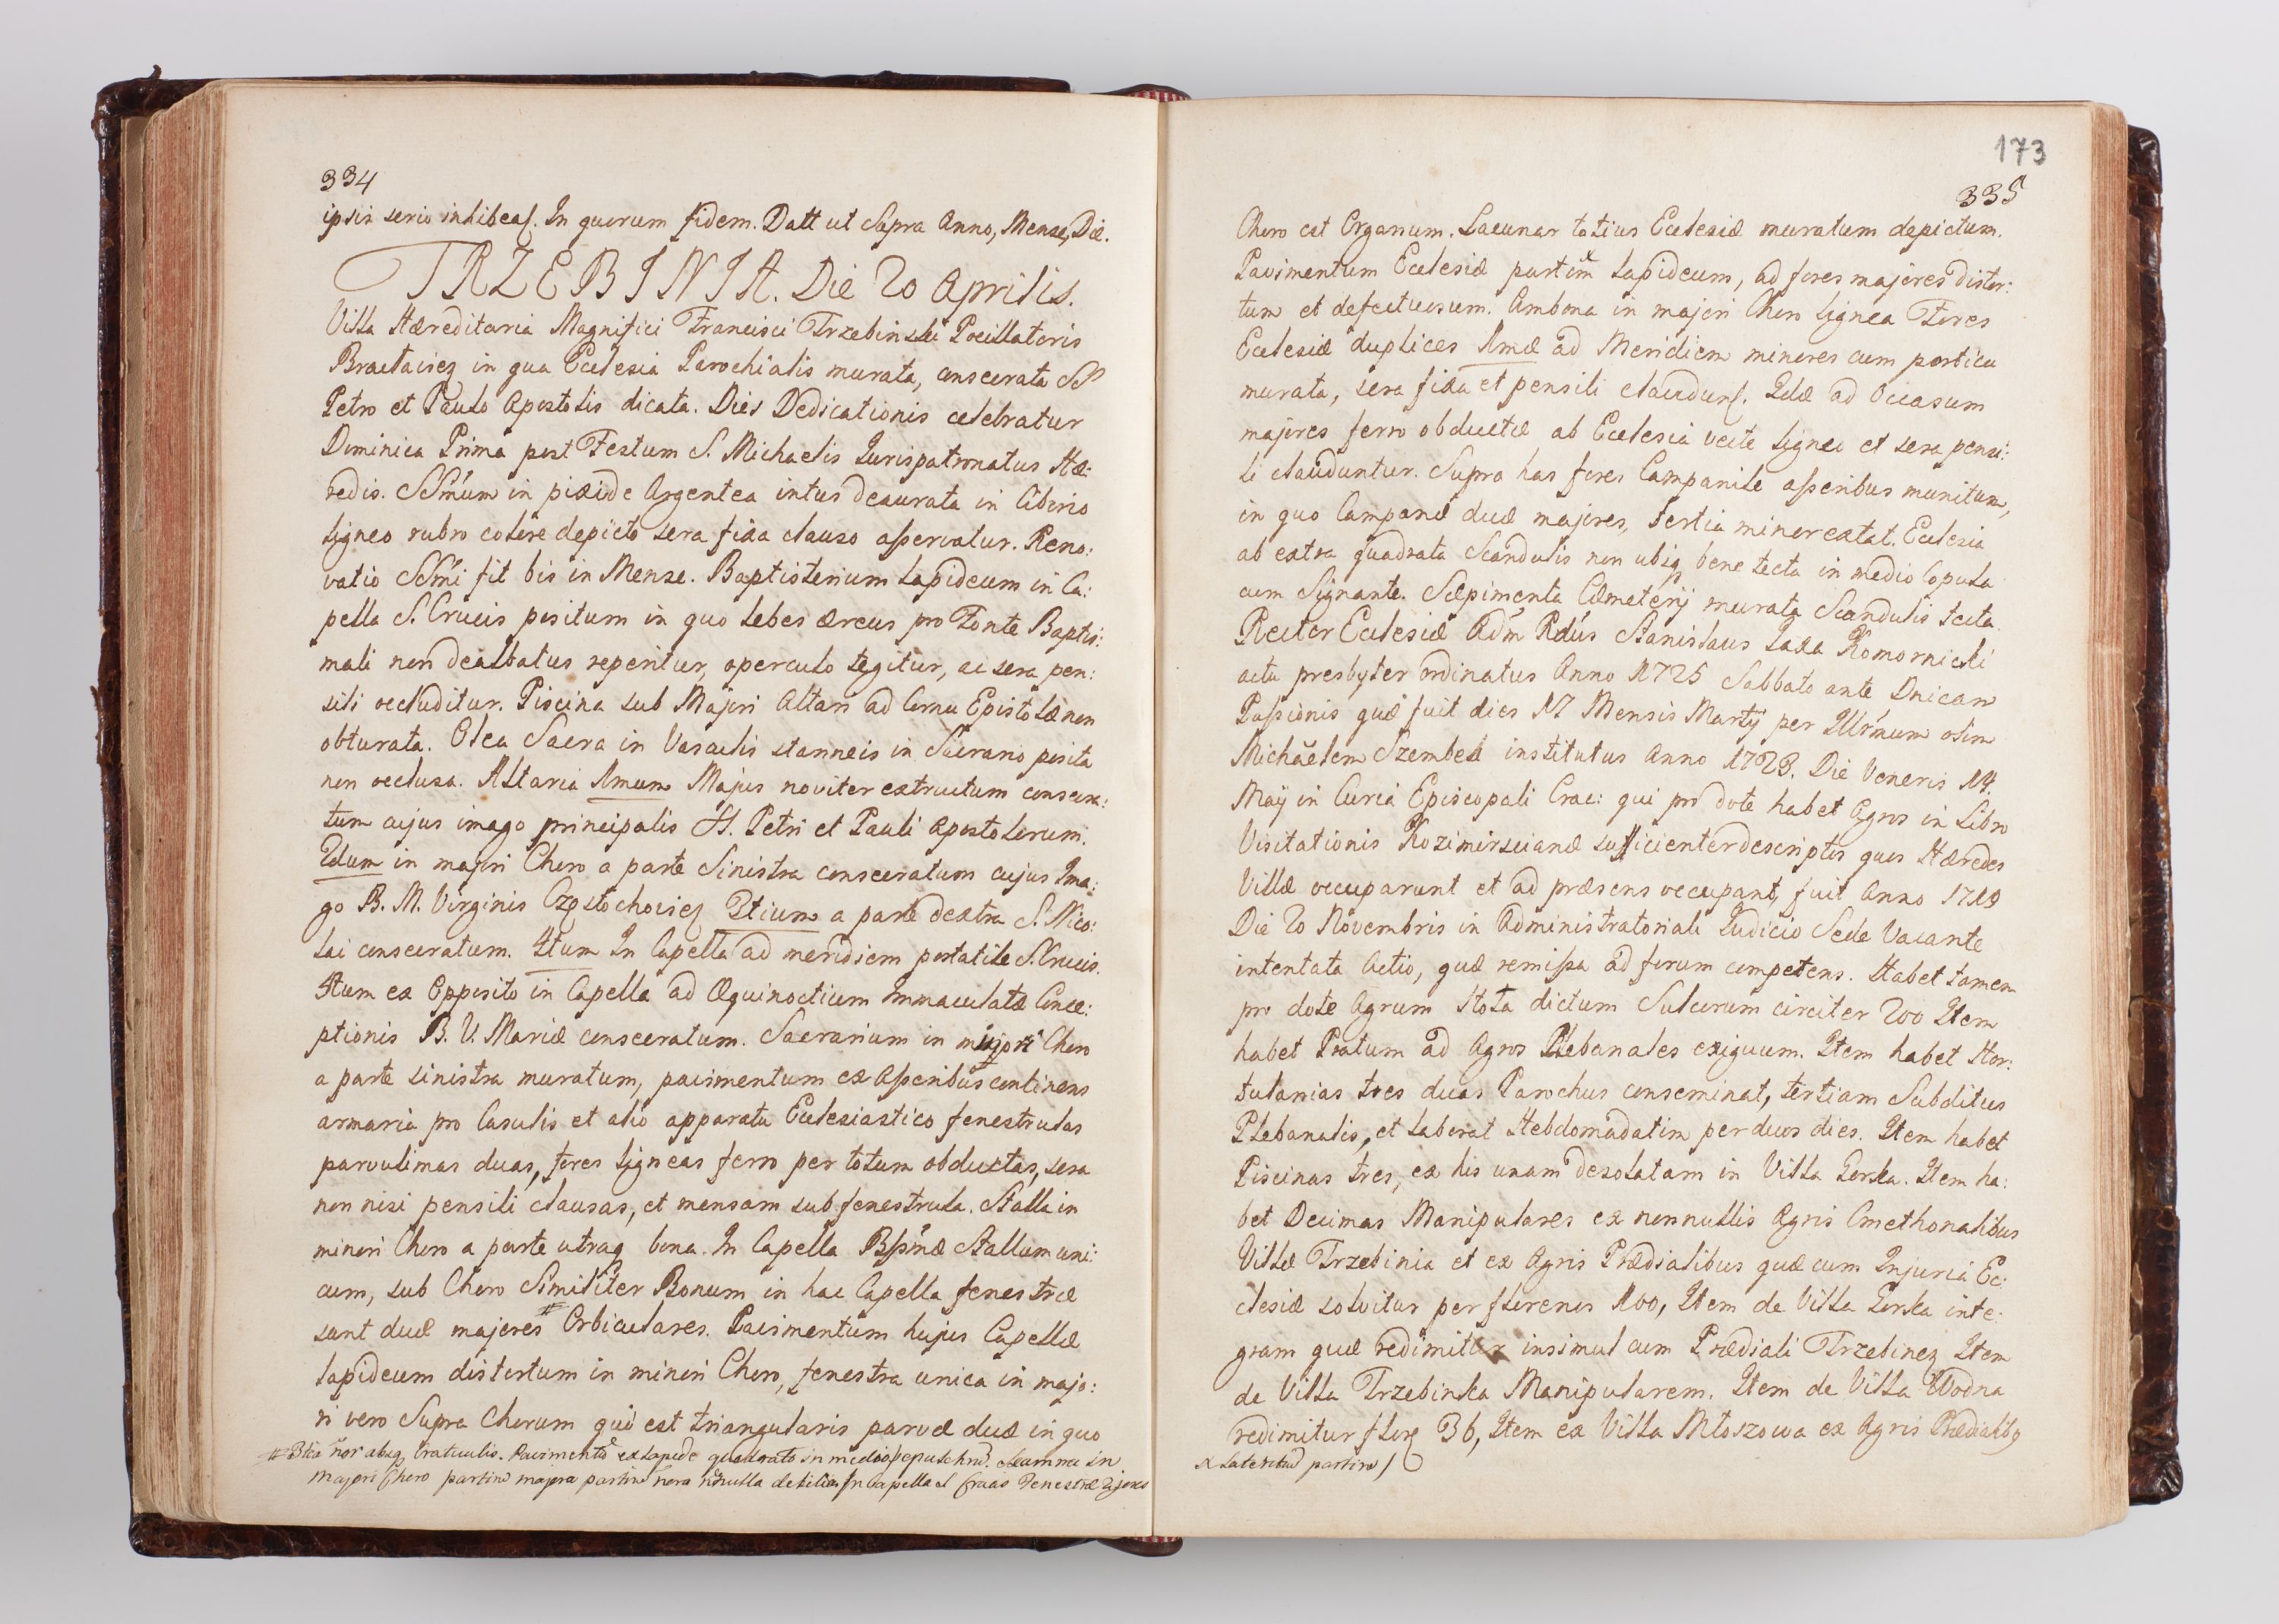 334
ipsis serio inhibeas. In quorum fidem. Datt ut Supra Anno, Mense, Die.
TRZEBINIA. Die 20 Aprilis.
Villa Hæreditaria Magnifici Francisci Trzebinski Pocillatoris
Braclaciez in qua Ecclesia Parochialis murata, consecrata SS
Petro et Paulo Apostolis dicata. Dies Dedicationis celebratur
Dominica Prima post Festum S. Michaelis Jurispatronatus Hæ:
redis. SSmum in pixide Argentea intus deaurata in Ciborio
ligneo rubro colore depicto sera fixa clauso asservatur. Reno:
vatio SSmi fit bis in Mense. Baptisterium lapideum in Ca:
pella S. Crucis positum in quo lebes æreus pro Fonte Baptis:
mali non dealbatus reperitur, operculo tegitur, ac sera pen:
sili occluditur. Piscina sub Majori Altari ad Cornu Epistolæ non
obturata. Olea Sacra in Vasculis stanneis in Sacrario posita
non occlusa. Altaria 1mum Majus noviter extructum consecra:
tum cujus imago principalis SS. Petri et Pauli Apostolorum.
2dum in majori Choro a parte Sinistra consecratum cujus Ima:
go B. M. Virginis Częstochoviez 3tium a parte dextra S. Nico:
lai consecratum. 4tum In Capella ad meridiem portatile S. Crucis.
5tum ex Opposito in Capella ad Æquinoctium Immaculatæ Conce:
ptionis B. V. Mariæ consecratum. Sacrarium in majori Choro
a parte sinistra muratum, pavimentum ex Asseribus continens
armaria pro Casulis et alio apparatu Ecclesiastico fenestrulas
parvulimas duas, fores ligneas ferro per totum obductas, sera
non nisi pensili clausas, et mensam sub fenestrula. Stalla in
minori Choro a parte utraq bona. In Capella Bssmæ Stallum uni:
cum, sub Choro Similiter Bonum in hac Capella fenestræ
sunt duæ majores # Orbiculares. Pavimentum hujus Capellæ
lapideum distortum in minori Choro, fenestra unica in majo:
ri vero Supra Chorum qui est triangularis parvæ duæ in quo
# 3tia non absq Craticulis. Pavimentū ex lapide quadrato in medio sepulchrū. Scamna in
majori Choro partim partim nova nonnulla debilia In Capella S Crucis Fenestræ
173
335
Choro est Organum. Lacunar totius Ecclesiæ muratum depictum.
Pavimentum Ecclesiæ partim x lapideum, ad fores majores distor:
tum et defectuosum. Ambona in majori Choro lignea Fores
Ecclesiæ duplices 1mæ ad Meridiem minores cum porticu
murata, sera fixa et pensili claudunt. 2dæ ad Occasum
majores ferro obductæ ab Ecclesia vecte ligneo et sera pensi:
li clauduntur. Supra has fores Campanile asseribus munitum,
in quo Campanæ duæ majores, tertia minor extat. Ecclesia
ab extra quadrata Scandulis non ubiq bene tecta in medio Copula
cum Signante. Sæpimenta Cæmeterij murata Scandulis tecta
Rector Ecclesiæ Adm Rdus Stanislaus Laxa Komornicki
actu presbyter ordinatus Anno 1725 Sabbato ante Dnicam
Passionis quæ fuit dies 17 Mensis Martij per Illrmum olim
Michaelem Szembek institutus Anno 1728. Die Veneris 14.
Maij in Curia Episcopali Crac: qui pro dote habet Agros in Libro
Visitationis Kozimirscianæ sufficienter descriptos quos Hæredes
Villæ occuparunt et ad præsens occupant, fuit Anno 1719
Die 20 Novembris in Administratoriali Judicio Sede Vacante
intentata Actio, quæ remissa ad forum competens. Habet tamen
pro dote Agrum Hota dictum Sulcorum circiter 200 Item
habet Pratum ad Agros Plebanales exiguum. Item habet Hor:
tulanias tres duas Parochus conseminat, tertiam Subditus
Plebanalis, et laborat Hebdomadatim per duos dies. Item habet
Piscinas tres, ex his unam desolatam in Villa Gorka. Item ha:
bet Decimas Manipulares ex nonnullis Agris Cmethonalibus
Villæ Trzebinia et ex Agris Prædialibus quæ cum Injuria Ec:
clesiæ solvitur per florenos 100, Item de Villa Gorka inte:
gram quæ redimitur insimul cum Prædiali Trzebinez Item
de Villa Trzebinka Manipularem. Item de Villa Wodna
redimitur flore 36, Item ex Villa Młoszowa ex Agris Prædialibq
x lateritiū partim